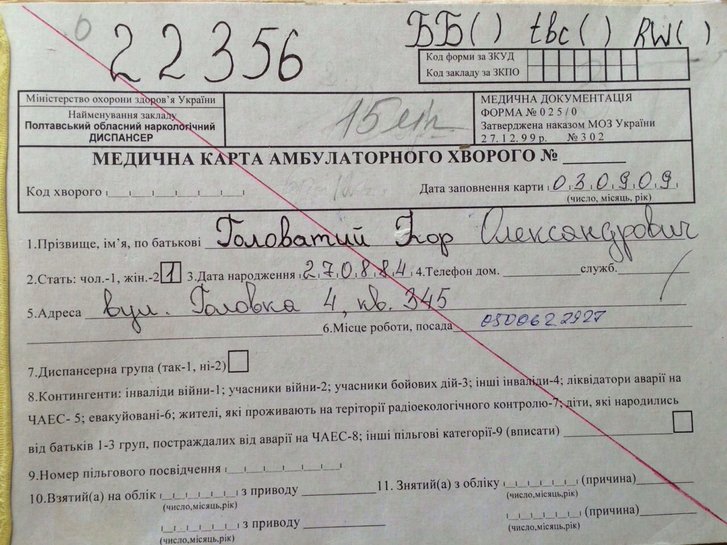 22356
ББ( ) tbc( ) RW( )
Код форми за ЗКУД
Код закладу за ЗКПО
Міністерство охорони здоров'я України
Найменування закладу
Полтавський обласний наркологічний
ДИСПАНСЕР
МЕДИЧНА ДОКУМЕНТАЦІЯ
ФОРМА № 025/0
Затверджена наказом МОЗ України
27.12.99р. №302
МЕДИЧНА КАРТА АМБУЛАТОРНОГО ХВОРОГО №
Код хворого
Дата заповнення карти 03.09.09
(число, місяць, рік)
1.Прізвище, ім'я, по батькові Головатий Ігор Олександрович
2.Стать: чол.-1, жін.-2 1 3.Дата народження 27.08.84 4.Телефон дом. служб.
5.Адреса вул. Головка 4, кв. 345
6.Місце роботи, посада 0500622927
7.Диспансерна група (так-1, ні-2)
8.Контингенти: інваліди війни-1; учасники війни-2; учасники бойових дій-3; інші інваліди-4; ліквідатори аварії на
ЧАЕС- 5; евакуйовані-6; жителі, які проживають на теріторії радіоекологічного контролю-7; діти, які народились
від батьків 1-3 груп, постраждалих від аварії на ЧАЕС-8; інші пільгові категорії-9 (вписати)
9.Номер пільгового посвідчення
10.Взятий(а) на облік з приводу 11. Знятий(а) з обліку (причина)
(число,місяць,рік) (число,місяць,рік)
з приводу (причина)
(число,місяць,рік) (число,місяць,рік)